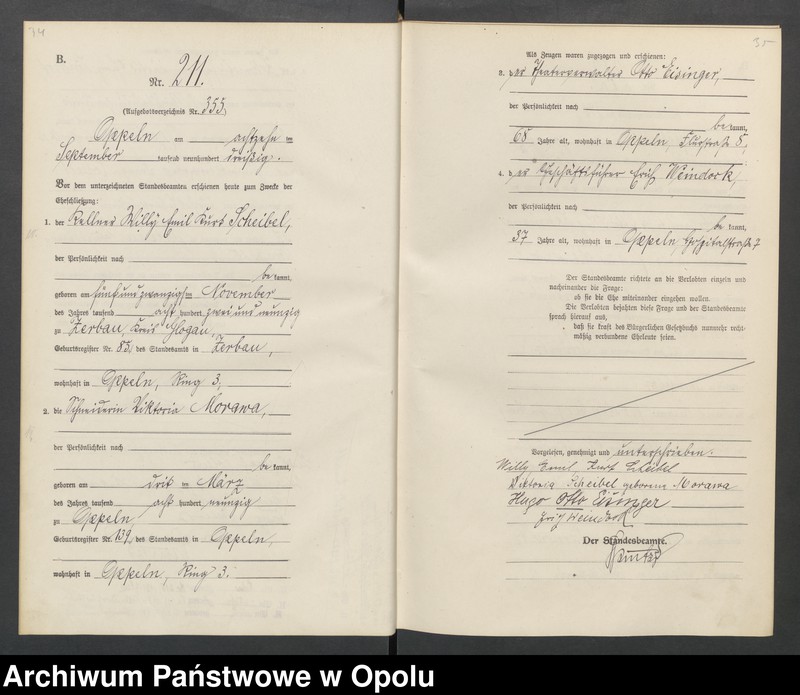 34
B.
Nr. 211.
(Aufgebotsverzeichnis Nr. 355)
Oppeln am achtzehn ten
September tausend neunhundert dreißig.
Vor dem unterzeichneten Standesbeamten erschienen heute zum Zwecke der
Eheschließung:
1. der Kellner Willy Emil Kurt Scheibel,
der Persönlichkeit nach
be kannt,
geboren am fünfundzwanzigsten November
des Jahres tausend acht hundert zweiundneunzig
zu Zerbau, Kreis Glogau,
Geburtsregister Nr. 83, des Standesamts in Zerbau,
wohnhaft in Oppeln, Ring 3,
2. die Schneiderin Viktoria Morawa,
der Persönlichkeit nach
be kannt,
geboren am dritten März
des Jahres tausend acht hundert neunzig
zu Oppeln,
Geburtsregister Nr. 139, des Standesamts in Oppeln,
wohnhaft in Oppeln, Ring 3.
35
Als Zeugen waren zugezogen und erschienen:
3. der Theaterverwalter Otto Eisinger,
der Persönlichkeit nach
be kannt,
65 Jahre alt, wohnhaft in Oppeln, Flurstraße 5,
4. der Geschäftsführer Erich Weindock,
der Persönlichkeit nach
be kannt,
37 Jahre alt, wohnhaft in Oppeln, Hospitalstraße 7
Der Standesbeamte richtete an die Verlobten einzeln und
nacheinander die Frage:
ob sie die Ehe miteinander eingehen wollen.
Die Verlobten bejahten diese Frage und der Standesbeamte
sprach hierauf aus,
daß sie kraft des Bürgerlichen Gesetzbuchs nunmehr recht-
mäßig verbundene Eheleute seien.
Vorgelesen, genehmigt und unterschrieben.
Willy Emil Kurt Scheibel
Viktoria Scheibel geborene Morawa
Hugo Otto Eisinger
Erich Weindock
Der Standesbeamte.
Archiwum Państwowe w Opolu